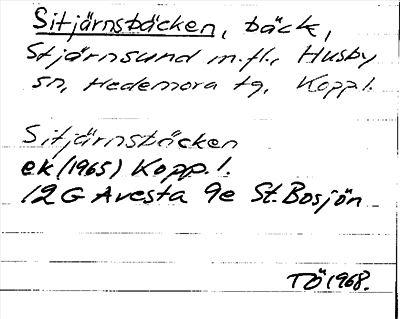 Sitjärnsbäcken, bäck,
Stjärnsund m.fl., Husby
sn, Hedemora tg, Koppl.
Sitjärnsbäcken
ek (1965) Kopp.l.
12G Avesta 9e St. Bosjön
TÖ 1968.